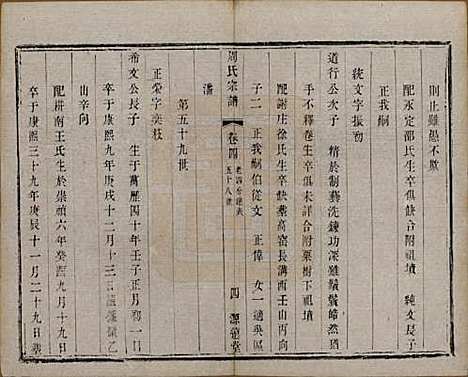 則止雖愠不慍
配永定邵氏生卒俱缺合附祖墳　純文長子
正我嗣
統文字振初
道行公次子　精於制藝洗鍊功深雖鬚鬢皓然猶
手不釋卷生卒俱未詳合附栗樹下祖墳
配謝庄徐氏生卒缺墓高窑長溝西壬山丙向
子二　正我嗣伯從文　正偉　女一適吳區
周氏宗譜
卷四
五十八世
四
源遠堂
潘
第五十九世
正榮字奕枝
希文公長子　生于萬歷四十年壬子正月初一日
卒于康熙九年庚戌十二月十三日
山辛向
配耕南王氏生於崇禎六年癸酉九月十九日
卒于康熙三十九年庚辰十一月二十九日